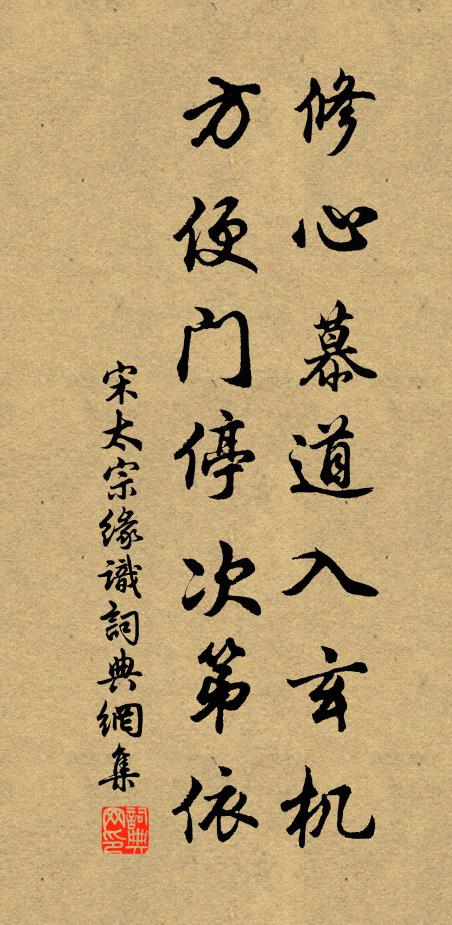 修心慕道入玄机
方便门停次第依
宋太宗缘識詞典網集
詞典网印